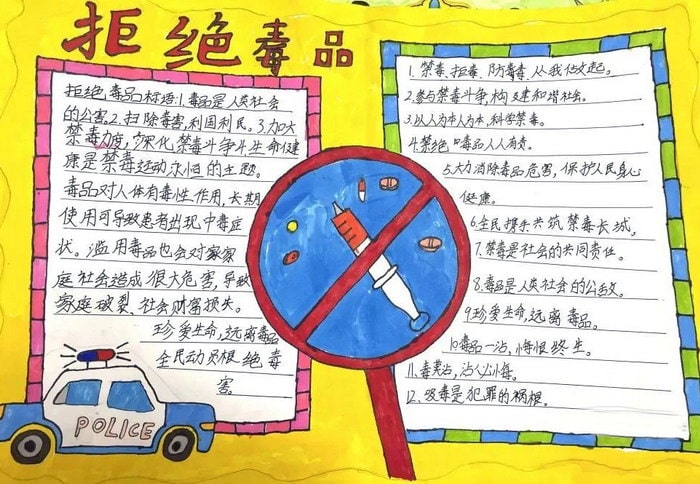 拒绝毒品
拒绝毒品标语:1.毒品是人类社会
的公害。2.扫除毒害,利国利民。3.加大
禁毒力度,深化禁毒斗争4.生命健
康是禁毒运动永恒的主题。
毒品对人体有毒性作用,长期
使用可导致患者出现中毒症
状。滥用毒品也会对家家
庭社会造成很大危害,导致
家庭破裂、社会财富损失。
珍爱生命,远离毒品
全民动员根绝毒
害。
POLICE
1.禁毒、拒毒、防毒毒、从我做起。
2.参与禁毒斗争,构建和谐社会。
3.以人为本人为本,科学禁毒。
4.禁绝毒品人人有责。
5.大力消除毒品危害,保护人民身心
健康。
6.全民携手共筑禁毒长城。
7.禁毒是社会的共同责任。
8.毒品是人类社会的公敌。
9珍爱生命,远离毒品。
10毒品一沾,悔恨终生。
11.毒莫沾,沾必悔。
12.吸毒是犯罪的祸根。